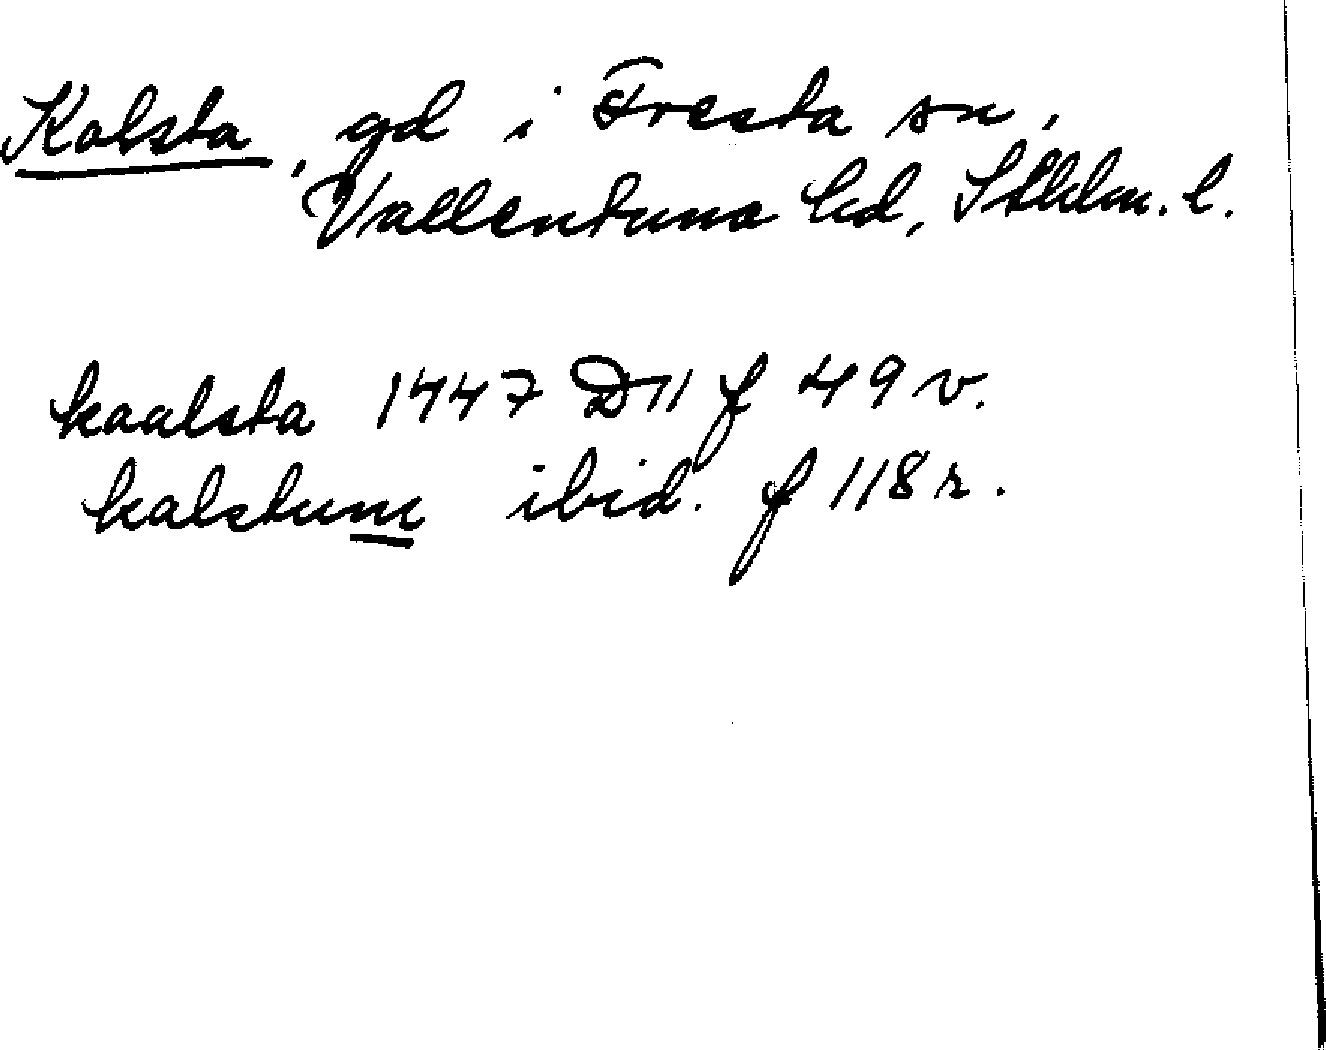 Kalsta, gd i Fresta sn,
Vallentuna hd, Sthlm. l.
kaalsta 1447 D11 f 49 v.
kalstum ibid. f 118 r.